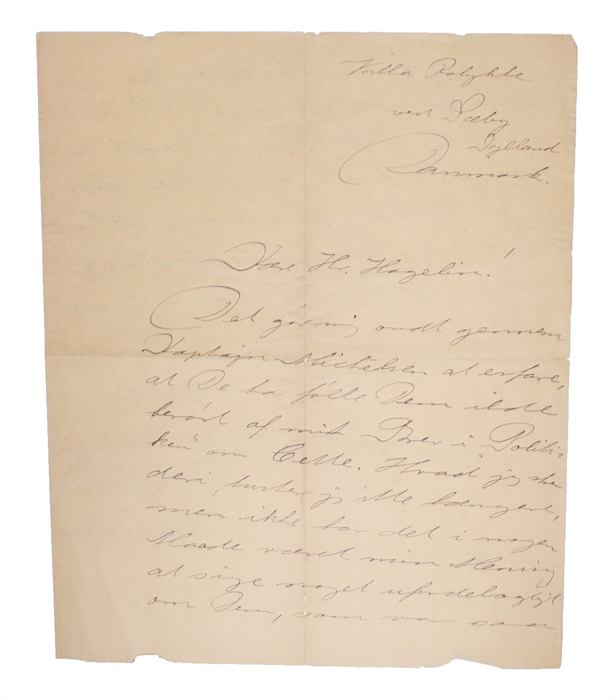 Villa
ved Sæby
Jylland
Danmark.
Kære Hr. Hagelin!
Det gør mig ondt gennem
Kaptajn Mickelsen at erfare,
at De har følt Dem ilde
berørt af mit Brev i "Politi-
ken" om Cette. Hvad jeg skrev
deri, husker jeg ikke længere,
men ikke har det i nogen
Maade været min Mening
at sige noget ufordelagtigt
om Dem, som var saa